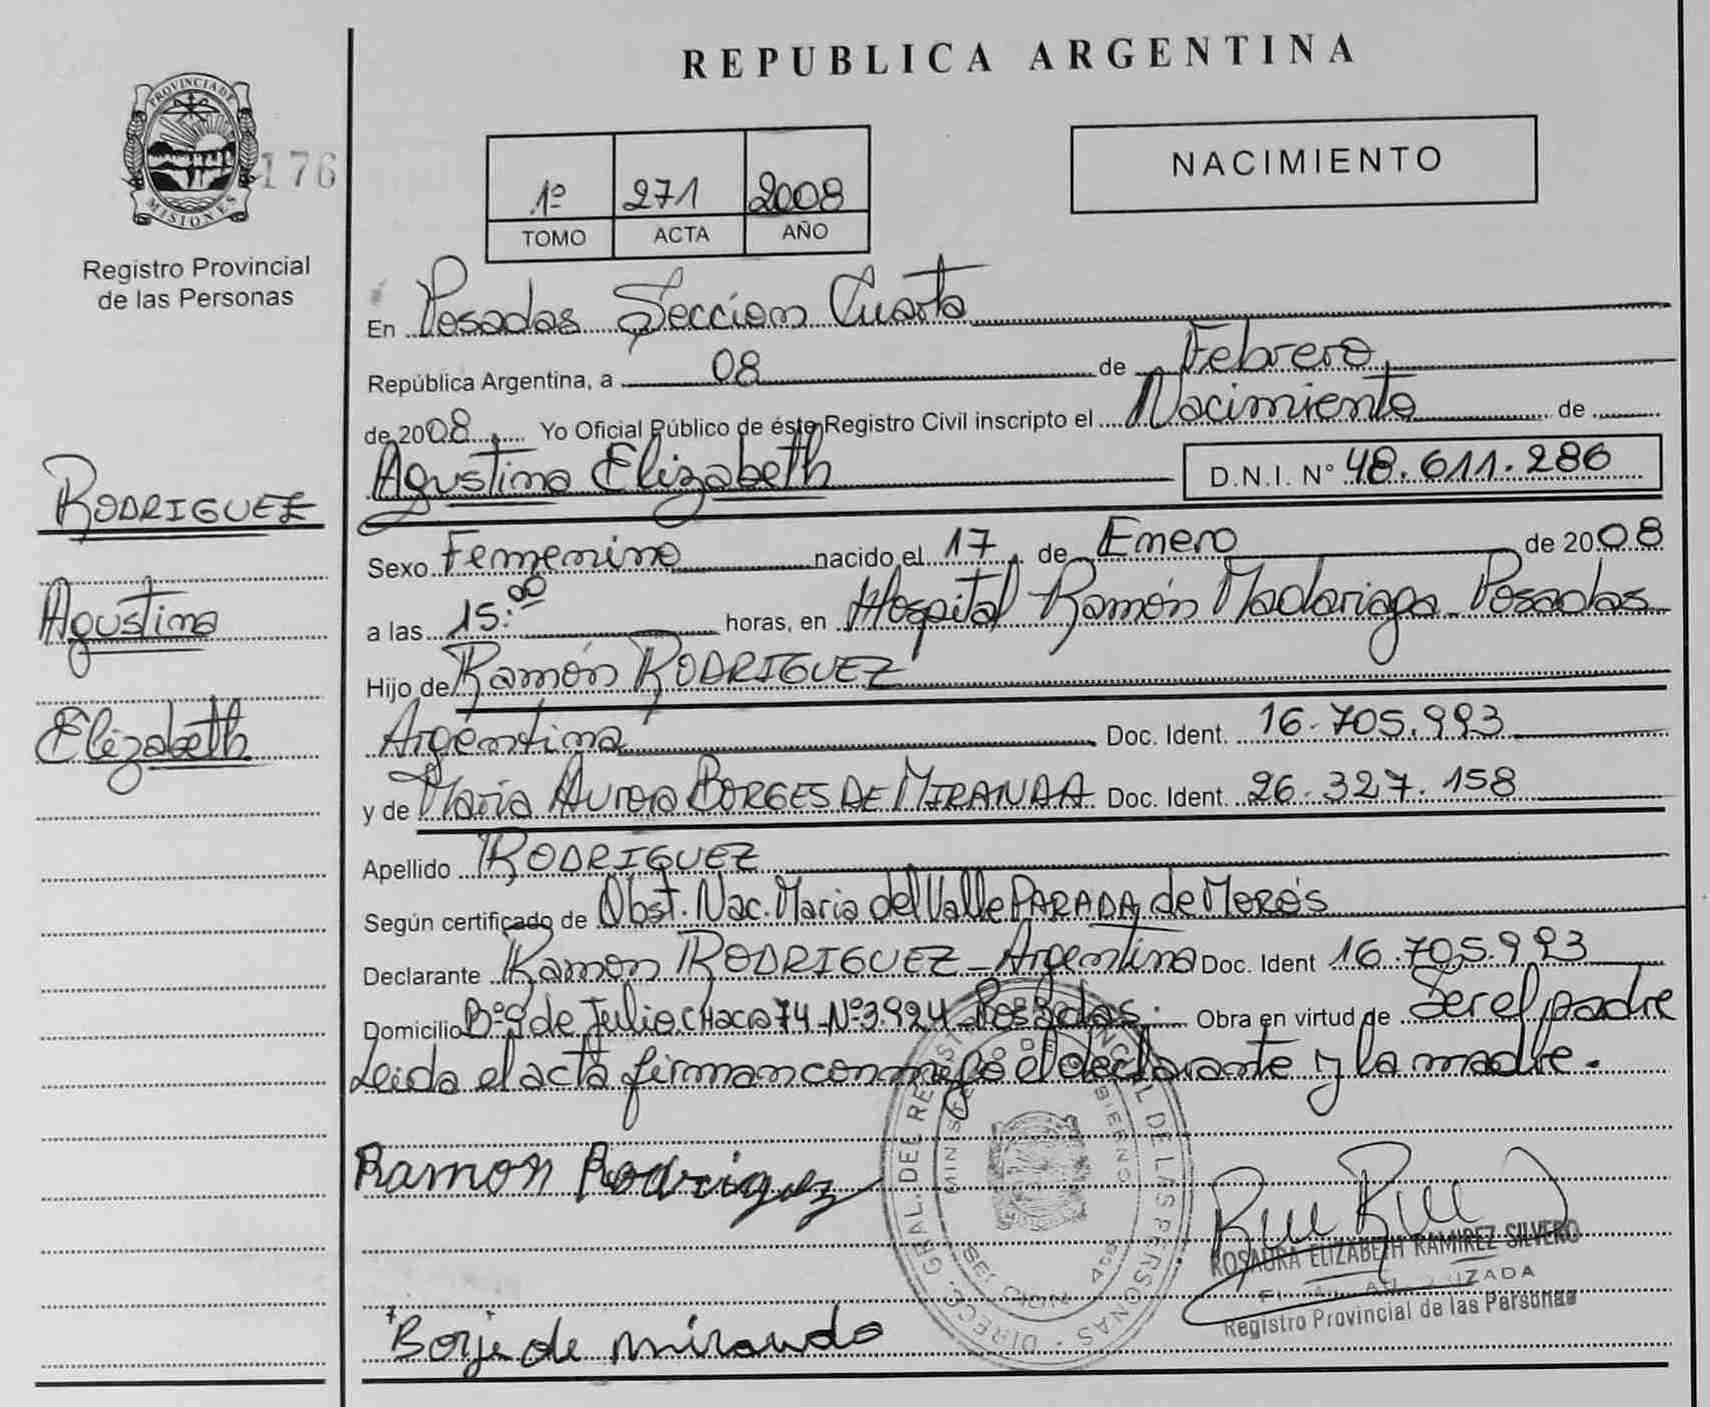 REPUBLICA ARGENTINA
PROVINCIA DE
MISIONES
176
Registro Provincial
de las Personas
1º 271 2008
TOMO ACTA AÑO
NACIMIENTO
En Posadas Sección Cuarta
República Argentina, a 08 de Febrero
de 2008 Yo Oficial Público de éste Registro Civil inscripto el Nacimiento de
Agustina Elizabeth D.N.I. Nº 48.611.286
RODRIGUEZ
Agustina
Elizabeth
Sexo Femenino nacido el 17 de Enero de 2008
a las 15:00 horas, en Hospital Ramón Madariaga Posadas
Hijo de Ramón RODRIGUEZ
Argentina Doc. Ident. 16.705.993
y de Maria Aurora BORGES DE MIRANDA Doc. Ident. 26.327.158
Apellido RODRIGUEZ
Según certificado de Obst. Nac. Maria del Valle PARADA de Morós
Declarante Ramon RODRIGUEZ - Argentina Doc. Ident 16.705.993
Domicilio Bº 9 de Julio CHacra 74 - Nº 3.924 - Posadas. Obra en virtud de Ser el padre
Leida el acta firman conmigo el declarante y la madre.
Ramon Rodriguez
ROSAURA ELIZABETH RAMIREZ SILVERO
Registro Provincial de las Personas
Borje de miranda